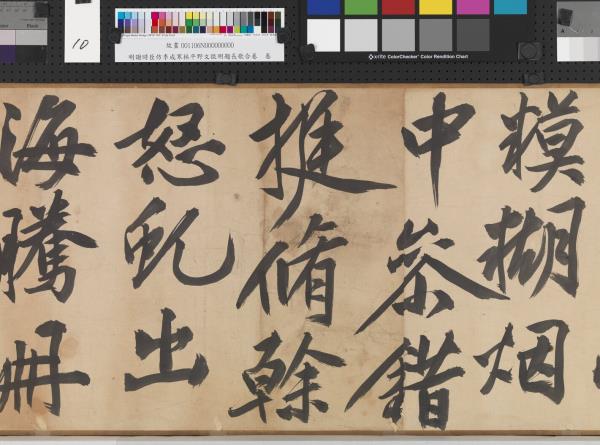 Black
10
故畫 001106N000000000
明謝時臣仿李成寒林平野文徵明題長歌合卷 卷
x-rite ColorChecker Color Rendition Chart
糢糊烟
中參錯
挺脩榦
怒虬出
海騰